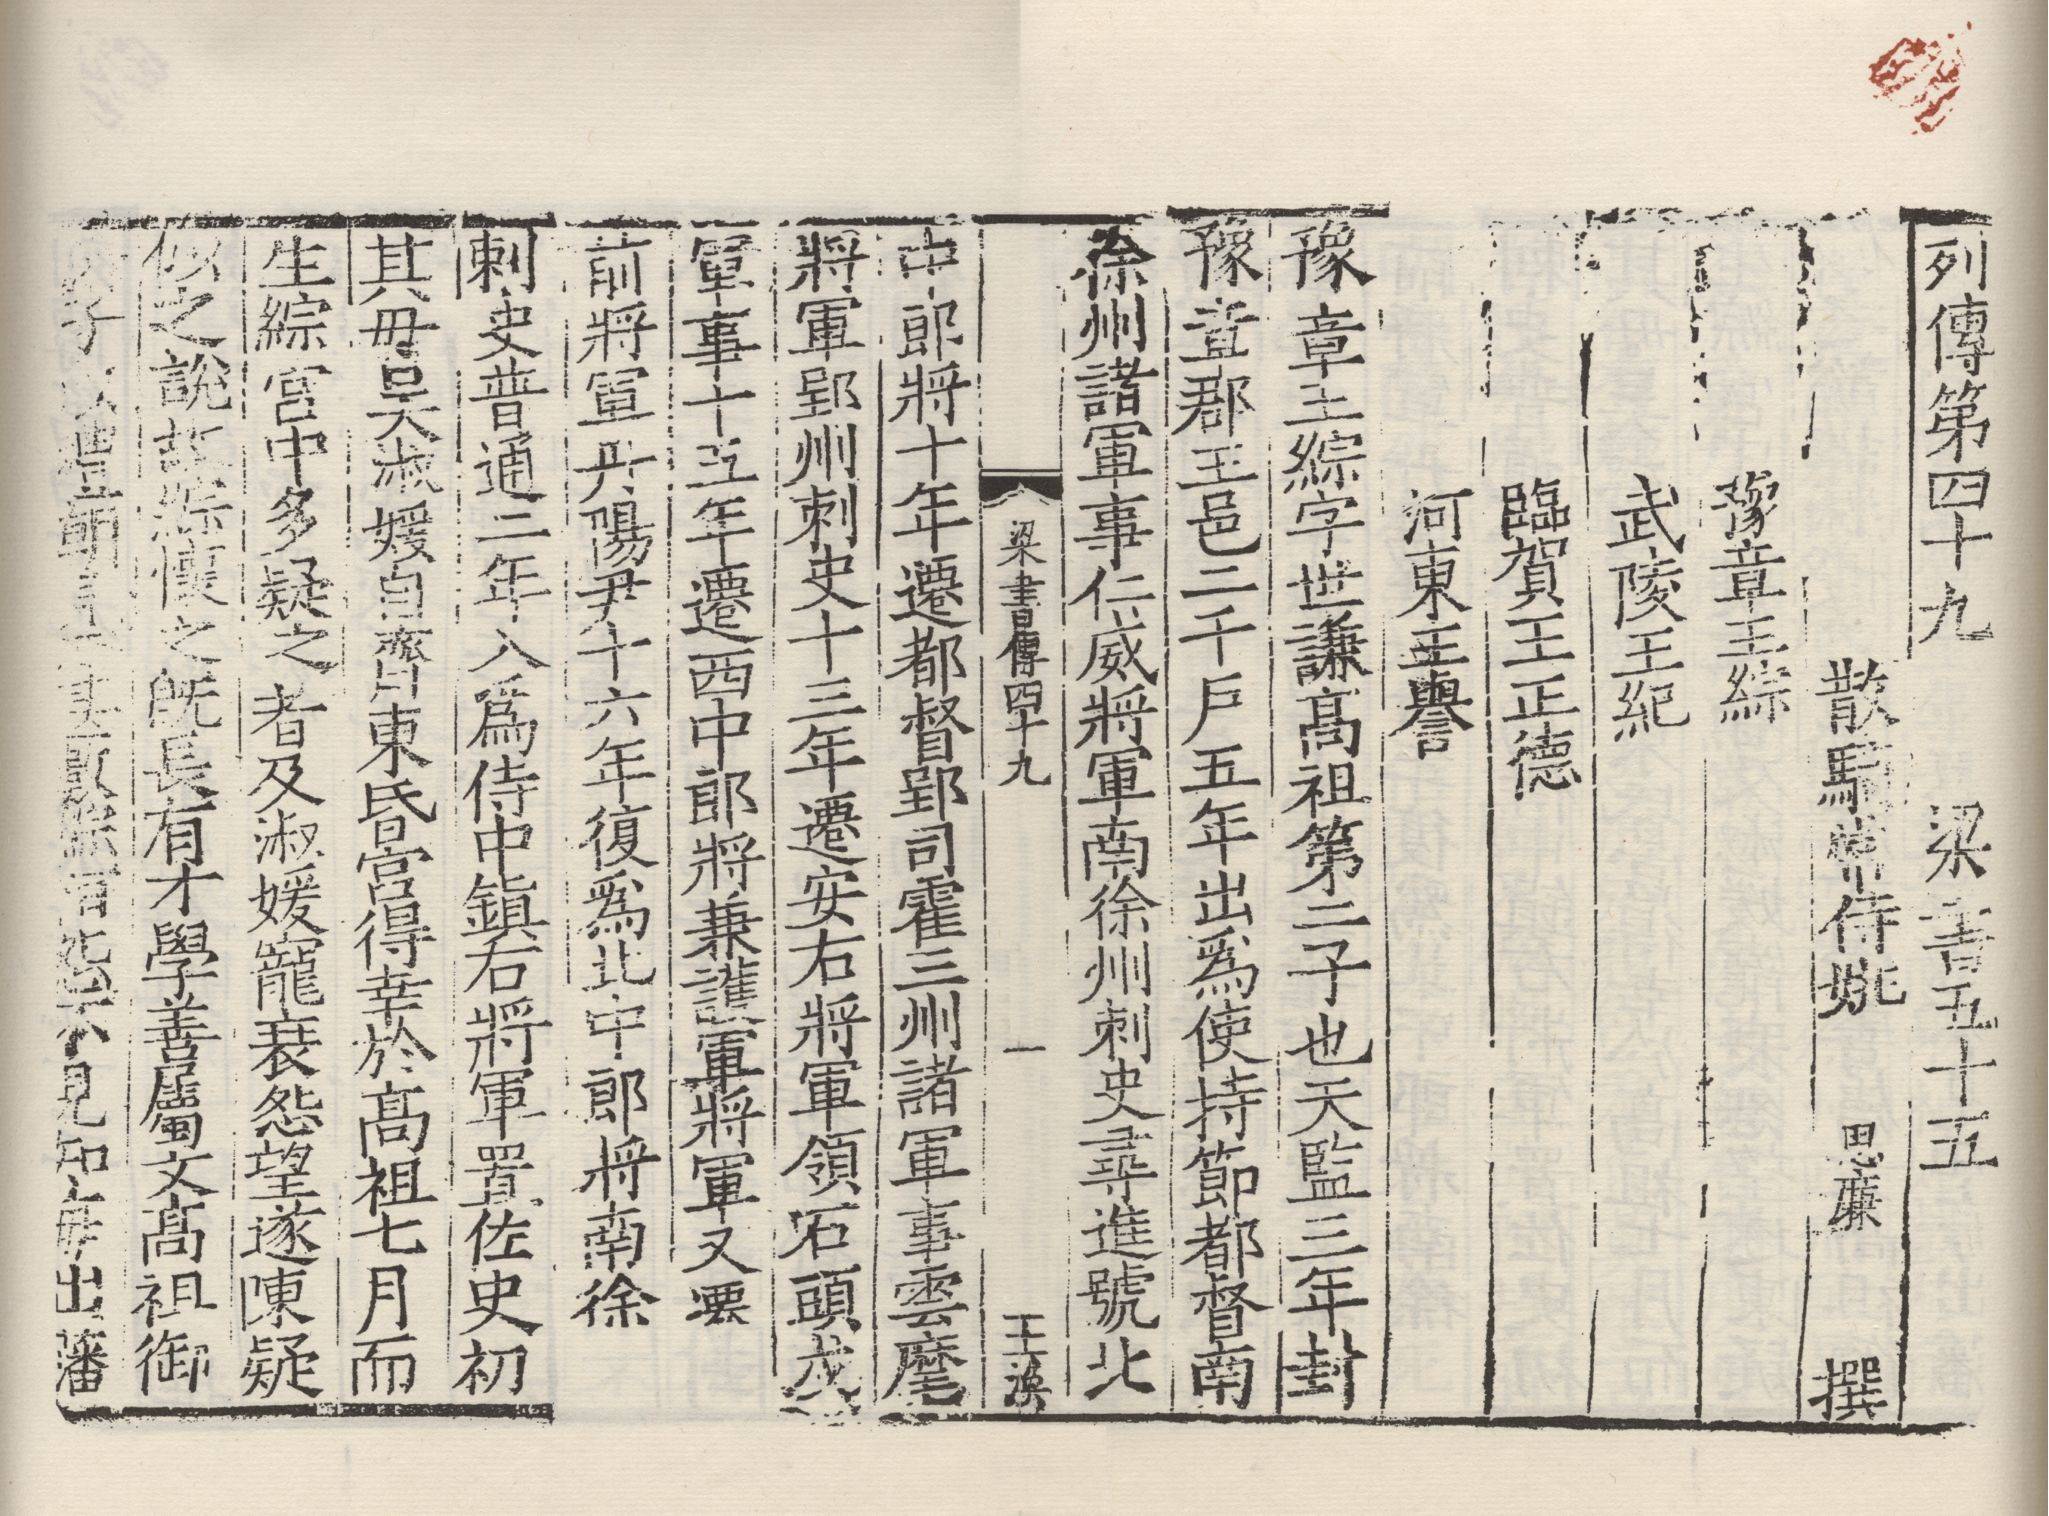 列傳第四十九　梁書五十五
散騎常侍姚　思廉　撰
豫章王綜
武陵王紀
臨賀王正德
河東王譽
豫章王綜字世謙高祖第二子也天監三年封
豫章郡王邑二千戶五年出爲使持節都督南
徐州諸軍事仁威將軍南徐州刺史尋進號北
梁書傳四十九　一　王渙
中郎將十年遷都督郢司霍三州諸軍事雲麾
將軍郢州刺史十三年遷安右將軍領石頭戍
軍事十五年遷西中郎將兼護軍將軍又遷
前將軍丹陽尹十六年復爲北中郎將南徐
刺史普通二年入爲侍中鎮右將軍置佐史初
其母吳淑媛自齊東昏宮得幸於高祖七月而
生綜宮中多疑之者及淑媛寵衰怨望遂陳疑
似之說故綜懷之旣長有才學善屬文高祖御
諸子以禮朝見不甚數綜恒怨不見知每出藩